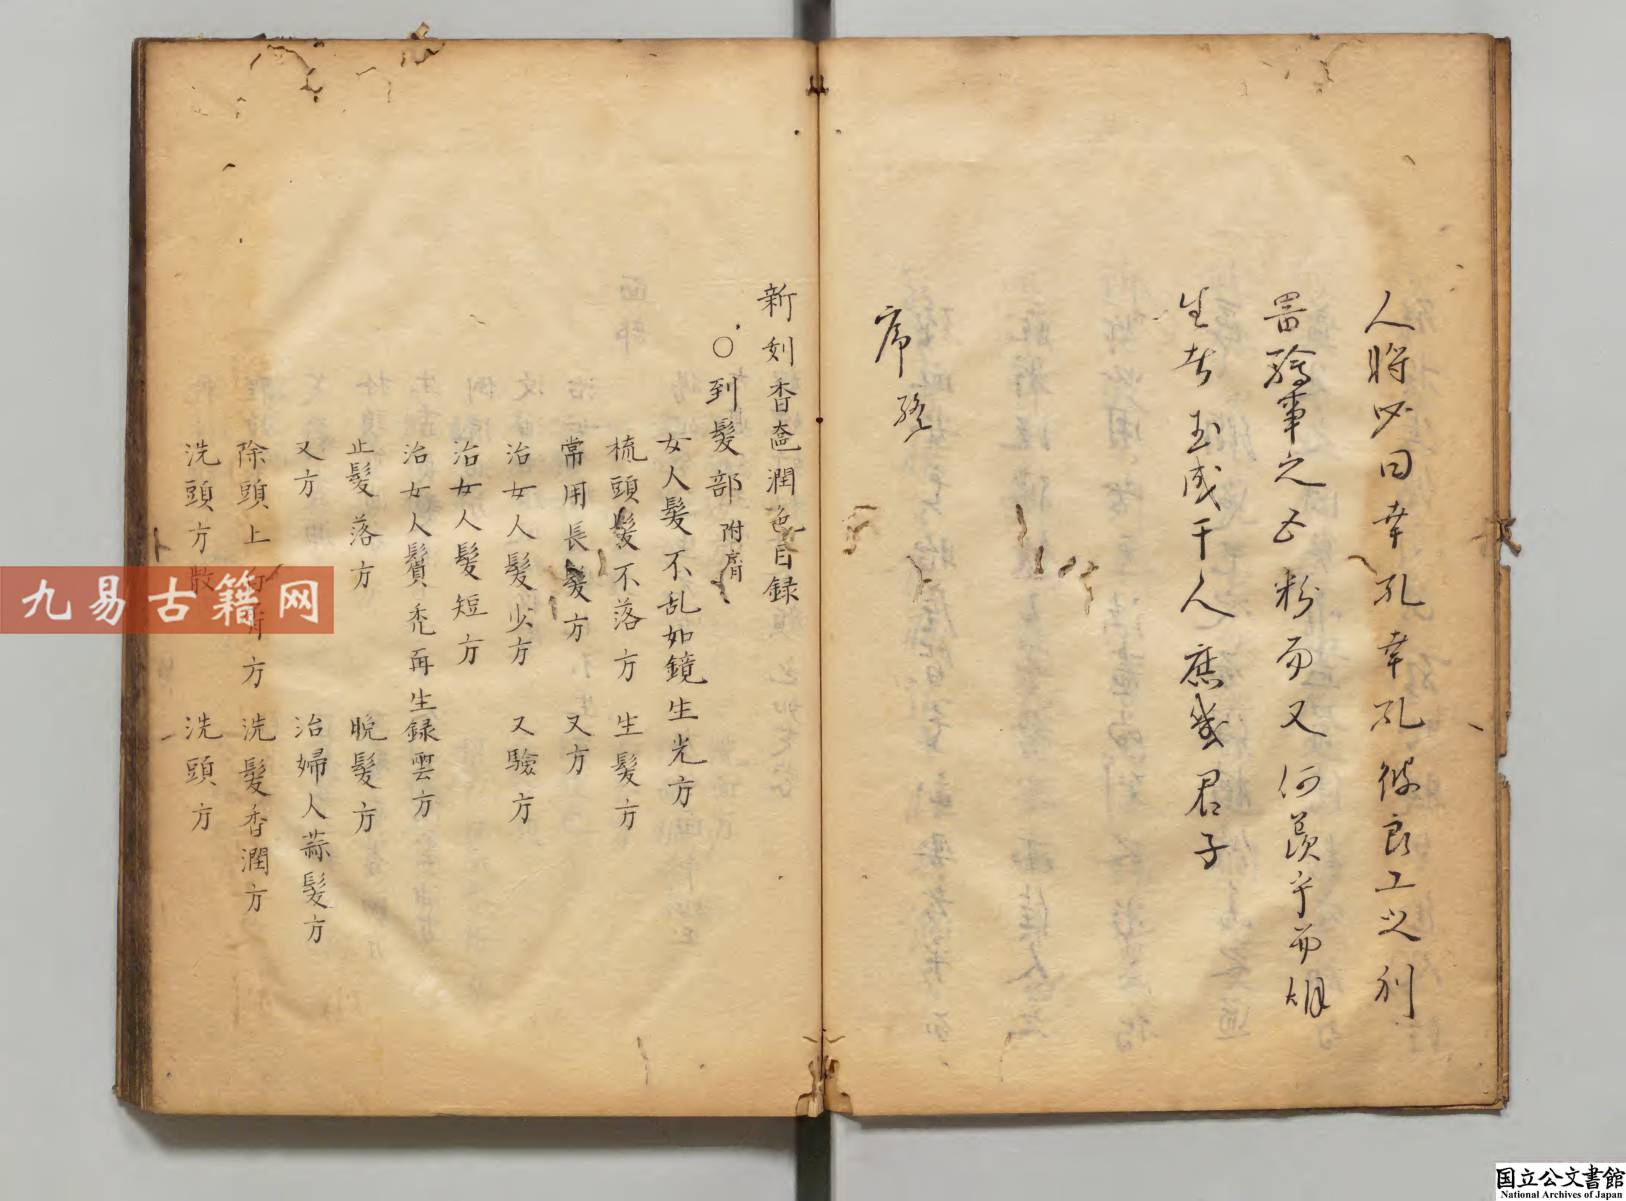 人將必曰幸孔幸孔彼良工之別
署繪事之五粉而又何羨乎而烟
生者玉成千人庶幾君子
序終
新刻香奩潤色目録
○到髮部 附膚
女人髮不乱如鏡生光方
梳頭髮不落方 生髮方
常用長髮方 又方
治女人髮少方 又驗方
治女人髮短方
治女人鬢禿再生録雲方
止髮落方 晩髮方
又方 治婦人蒜髮方
除頭上 方 洗髮香潤方
洗頭方散 洗頭方
九易古籍网
国立公文書館
National Archives of Japan